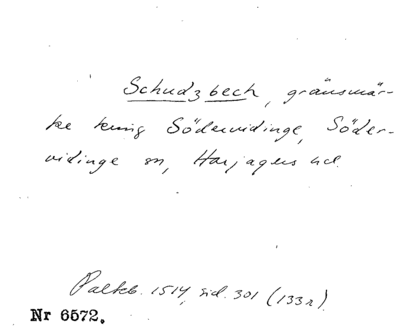 Schudzbech, gränsmär-
ke kring Södervidinge, Söder-
vidinge sn, Harjagers hd.
Palteb. 1514, sid. 301 (133r).
Nr 6572.